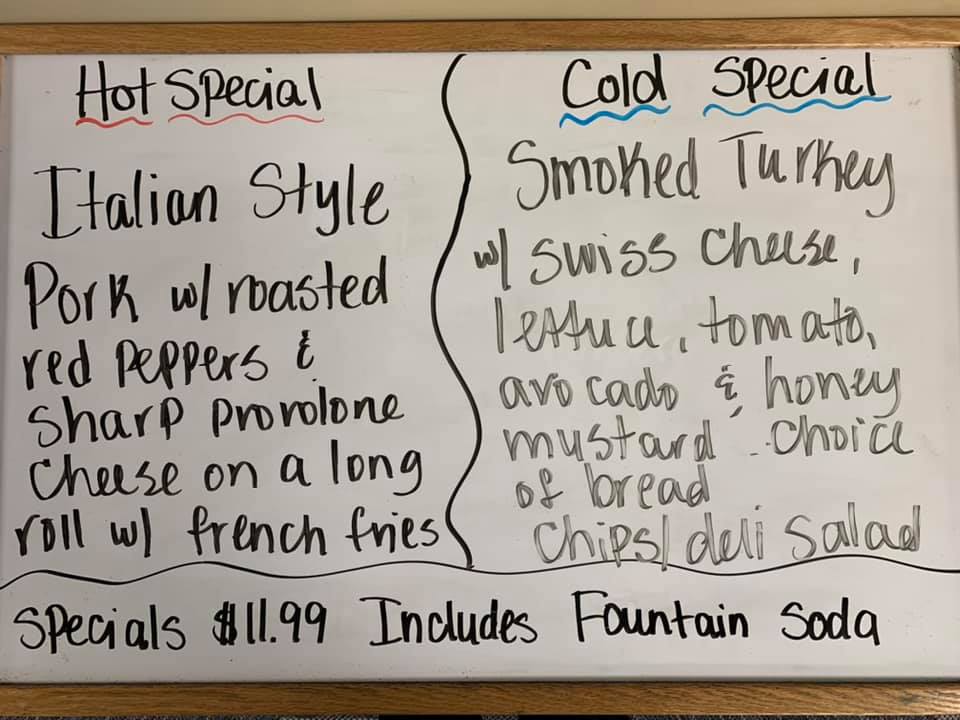 Hot Special
Italian Style
Pork w/ roasted
red peppers &
sharp provolone
cheese on a long
roll w/ french fries
Cold Special
Smoked Turkey
w/ swiss cheese,
lettuce, tomato,
avocado & honey
mustard. Choice
of bread
Chips/deli salad
Specials $11.99 Includes Fountain Soda